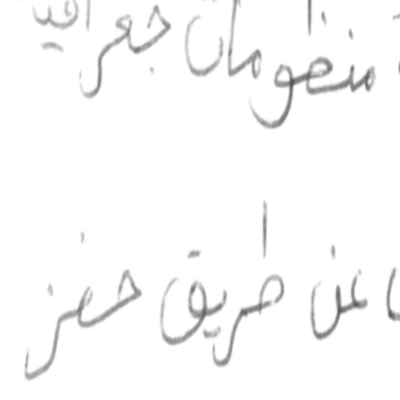 منظومات جغرافية
عن طريق حفز